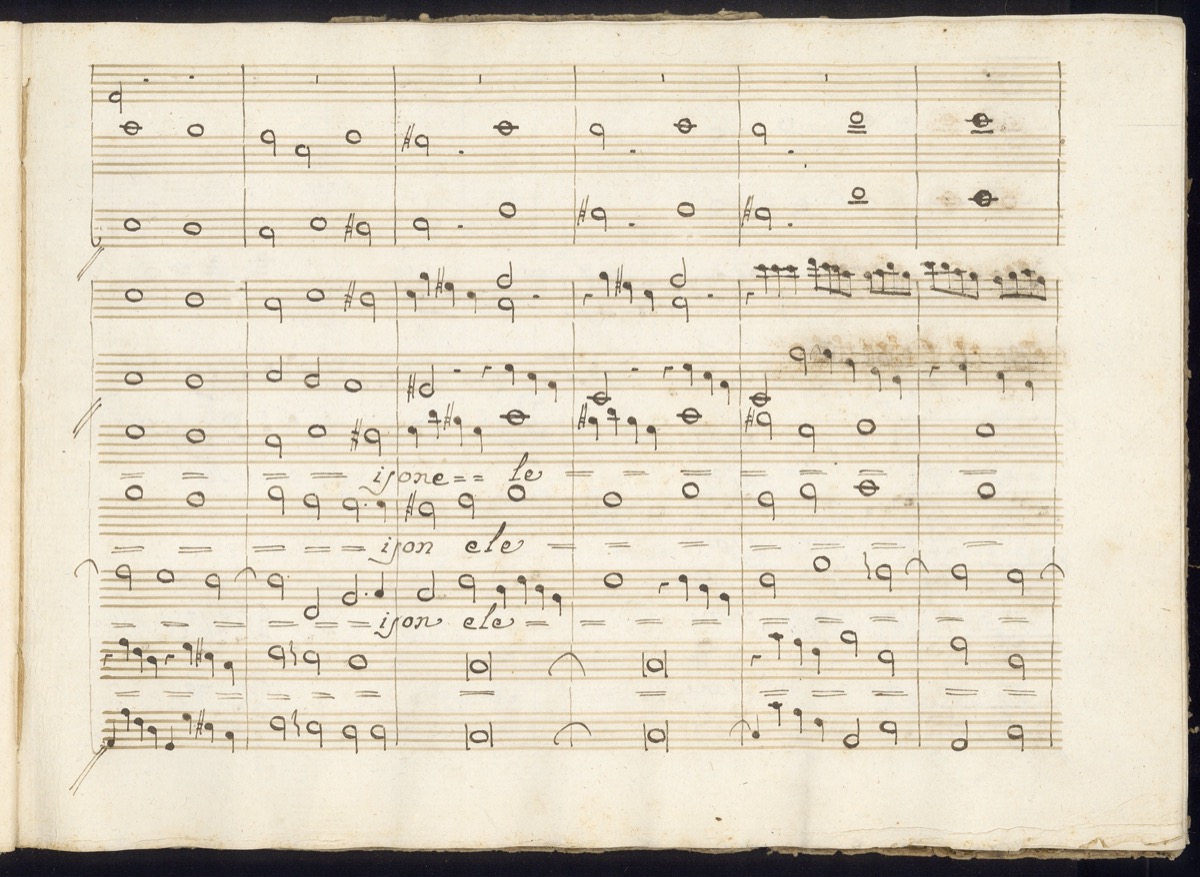 isone == le
ison ele
ison ele